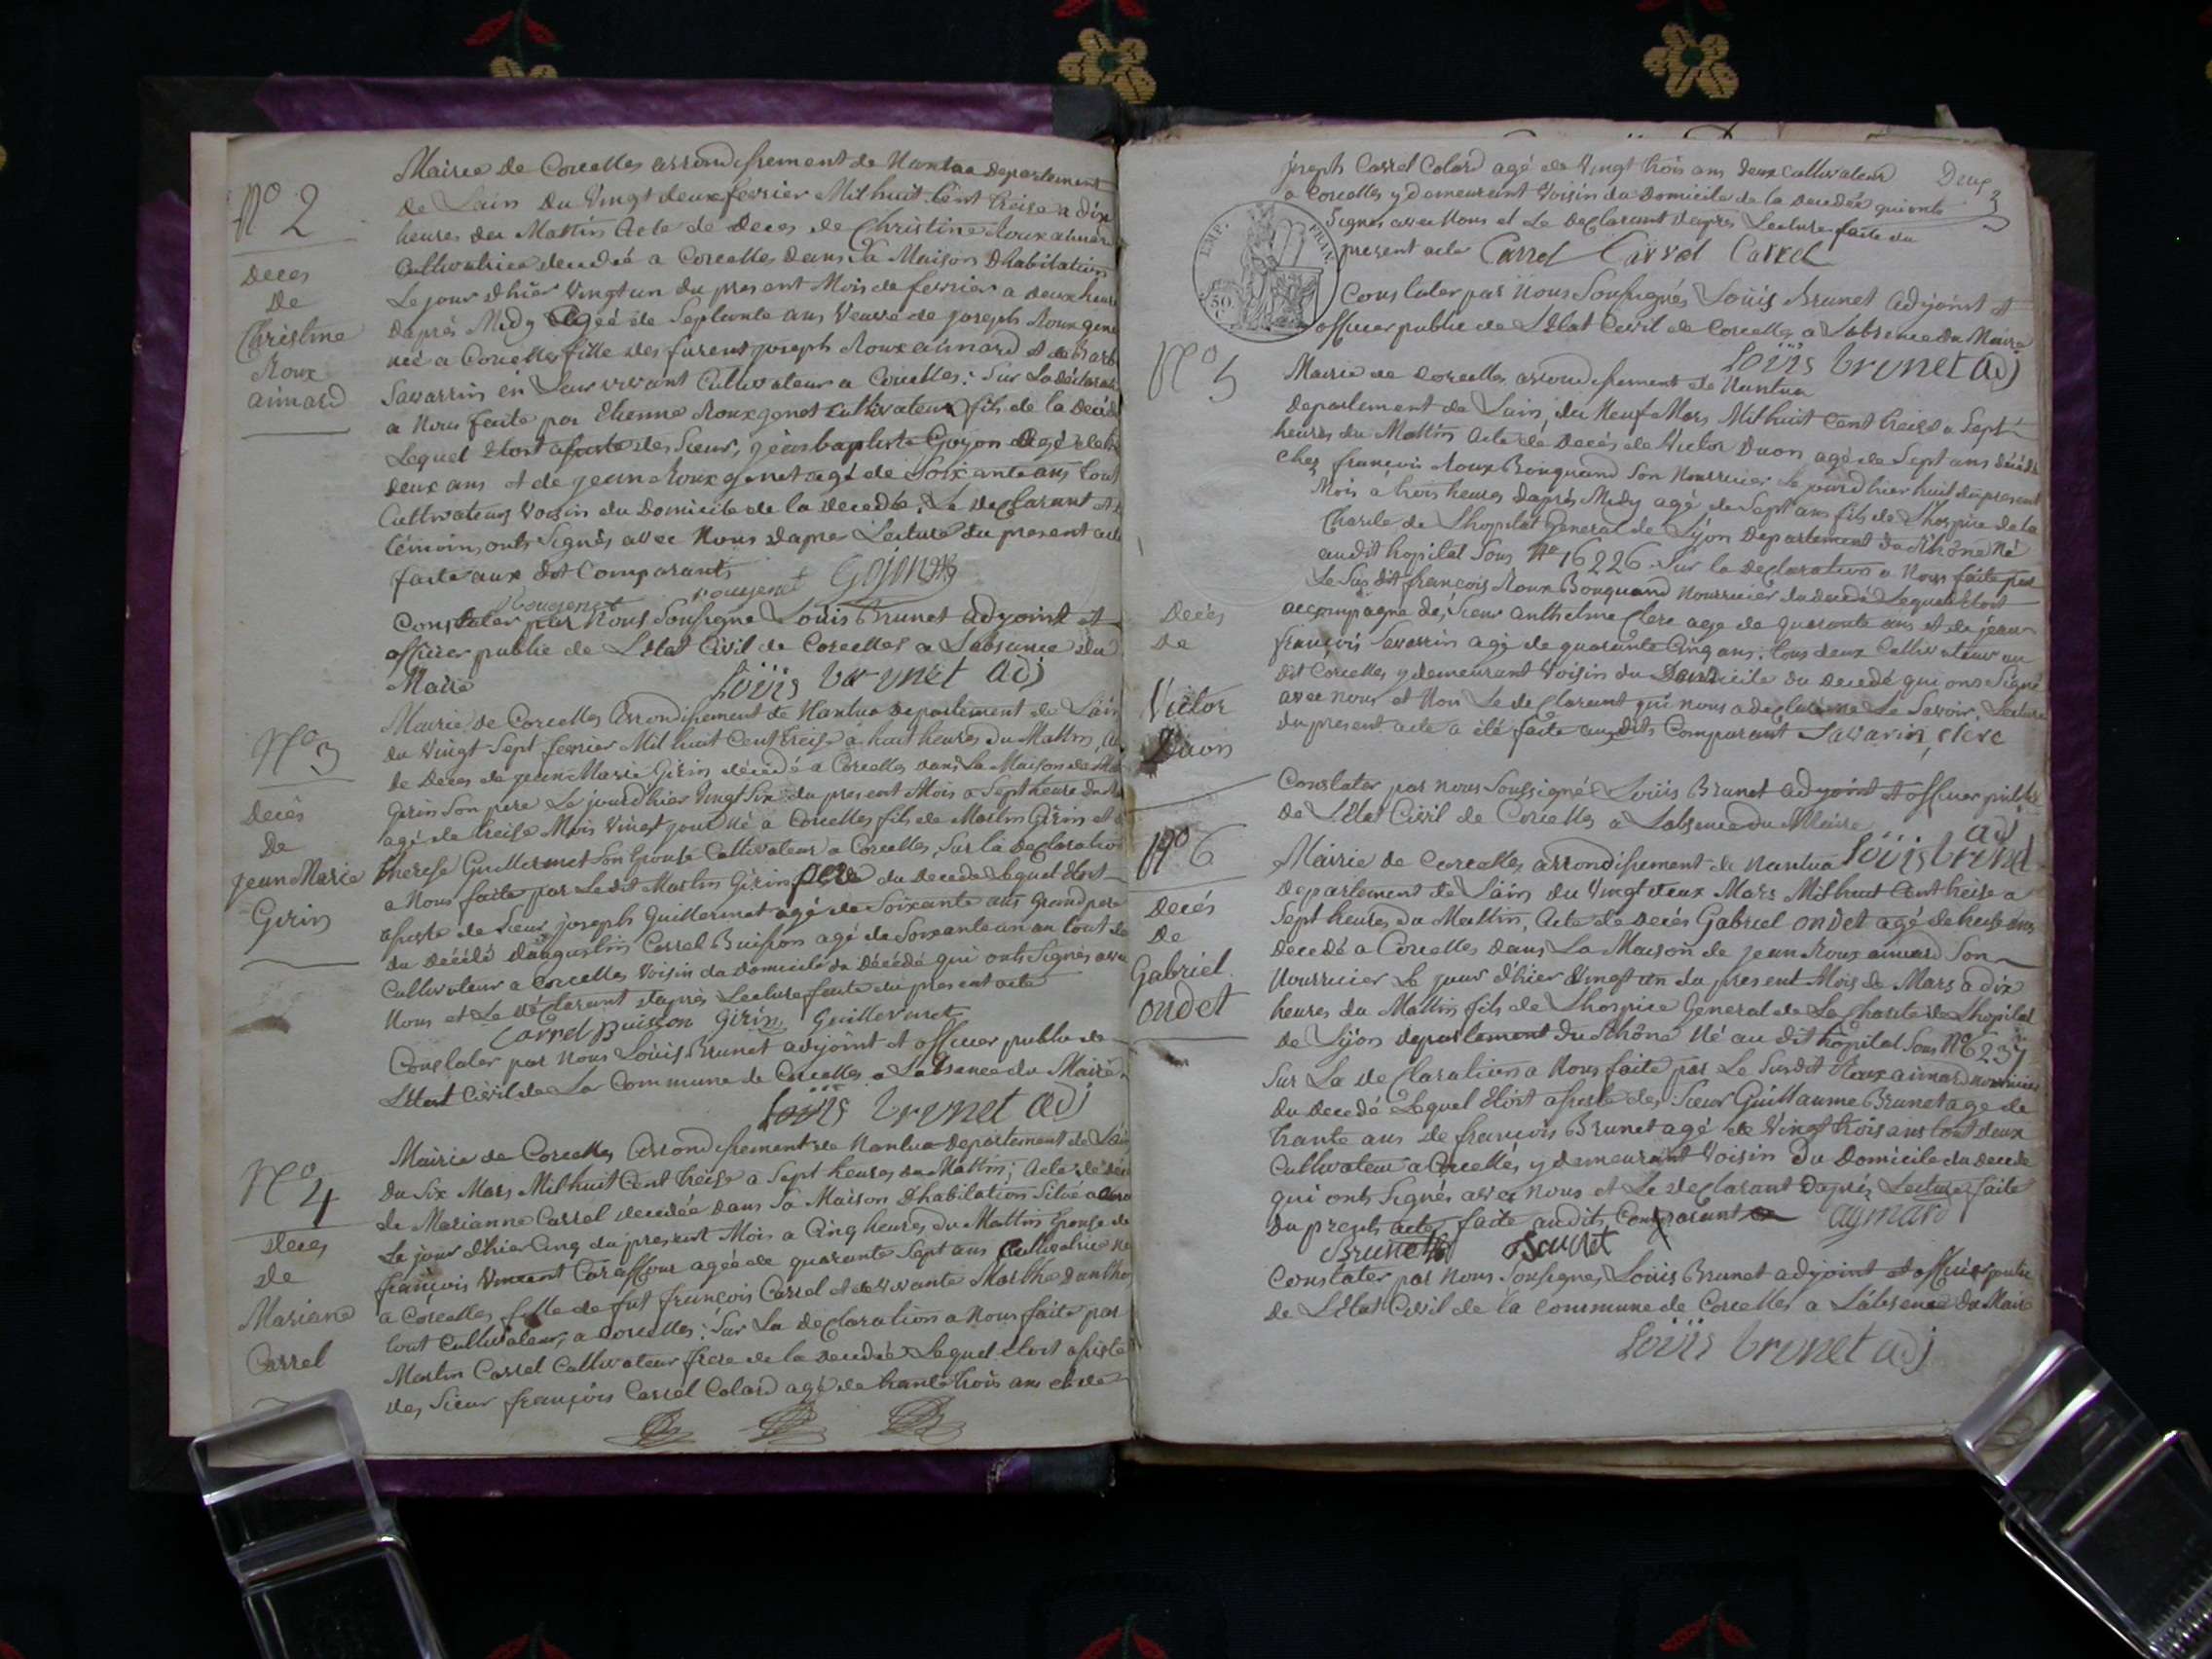 Nº 2
Deces
De
Christine
Roux
aimard
Mairie de Corcelles arrondissement de Nantua Departement
de Lain du Vingt deux fevrier Mil huit Cent treise a dix
heures du Mattin Acte de Deces de Christine Roux aimard
Cultivatrice decedeé a Corcelles dans Sa Maison Dhabitation
Le jour dhier Vingt un du present Mois de fevrier a deux heure
Daprés Midy Ageé de Septante ans Veuve de joseph Roux gene
neé a Corcelles fille des furent joseph Roux aimard et de Barb
Savarrin en Leur vivant Cultivateur a Corcelles : Sur La déclarat
a Nous faite par Etienne Roux genet Cultivateur fils de la Decedé
Lequel Etoit assisté des Sieur, jean baptiste Gojon Agé de
deux ans et de jean Roux genet agé de Soixante ans tout
Cultivateurs Voisin du Domicile de la decedée. Le declarant et
témoins onts Signés avec Nous dapres Lecture du present acte
faite aux dit Comparants
Rougenet rougenet Gojon
Constater par Nous Soussigne Louis Brunet adjoint et
officier public de LEtat Civil de Corcelles a Labsence du
Maire
Loüis brunet adj
Nº 3
Decès
De
jean Marie
Girin
Mairie de Corcelles Arrondissement de Nantua Departement de Lain
du Vingt Sept fevrier Mil huit Cent treise a huit heures du Mattin,
de Deces de jean Marie Girin décedé a Corcelles dans La Maison de
Girin Son pere Le jour dhier Vingt Six du present Mois a Sept heure du
agé de treise Mois Vingt jour Né a Corcelles fils de Martin Girin et
Therese Guillermet Son Epouse Cultivateur a Corcelles, Sur la Declaration
a Nous faite par Ledit Martin Girin pere du decedé Lequel Etoit
assisté de Sieur joseph Guillermet agé de Soixante ans Grand pere
du Décédé daugustin Carrel Buisson agé de Soixante un an tout de
Cultivateur a Corcelles Voisin du domicile du Décédé qui onts Signés avec
Nous et Le Déclarant daprès Lecture faite du present acte
Carrel Buisson Girin Guillermet
Constater par Nous Loüis Brunet adjoint et officier public de
LEtat Civil de La Commune de Corcelles a Labsence du Maire
Loüis brunet adj
Nº 4
Deces
de
Mariane
Carrel
Mairie de Corcelles Arrondissement de Nantua Departement de Lain
Du Six Mars Mil huit Cent treise a Sept heures du Mattin; Acte de déc
de Marianne Carrel decedée dans Sa Maison Dhabitation Situé a
Le jour dhier Cinq du present Mois a Cinq heures du Mattin Epouse de
françois Vincent agée de quarante Sept ans Cultivatrice né
a Corcelles fille de fut françois Carrel et de Vivante Marthe
tout Cultivateur, a Corcelles : Sur La declaration a Nous faite par
Martin Carrel Cultivateur frere de la decedée Lequel Etoit assisté
des Sieur françois Carrel Colard agé de trante trois ans et de
Deux
joseph Carrel Colard agé de Vingt trois ans deux Cultivateur
a Corcelles y demeurant Voisin du Domicile de la Decedée qui onts
Signés avec Nous et Le Declarant dapres Lecture faite du
present acte Carrel Carrel Carrel
EMP. FRAN.
50 C
Constater par Nous Soussignés Loüis Brunet Adjoint et
officier public de LEtat Civil de Corcelles a Labsence du Maire
Loüis brunet adj
Nº 5
Decés
De
Victor
Duon
Mairie de Corcelles arrondissement de Nantua
Departement de Lain, du Neuf Mars Mil huit Cent treise a Sept
heures du Mattin Acte de Decés de Victor Duon agé de Sept ans décédé
Chez françois Roux Bonquand Son Nourricier Le jour dhier huit du present
Mois a trois heures daprés Midy agé de Sept ans fils de Lhospice de la
Charité de Lhopital General de Lÿon Departement du Rhône Né
au dit hopital Sous Nº 16226. Sur la Declaration a Nous faite par
Le Sus dit françois Roux Bonquand Nourricier du decedé Lequel Etoit
accompagne des Sieur anthelme Clerc age de quarante ans et de jean
françois Savarrin agé de quarante Cinq ans. tous deux Cultivateur au
dit Corcelles y demeurant Voisin du Domicile du Decedé qui ons Signé
avec nous et Non Le declarant qui nous a declaré ne Le Savoir. Lecture
du present acte a été faite aux dits Comparant Savarin, clerc
Constater par nous Soussigné Loüis Brunet adjoint et officier public
de LEtat Civil de Corcelles a Labsence du Maire
Loüis brunet adj
Nº 6
Decés
De
Gabriel
ondet
Mairie de Corcelles arrondissement de Nantua
Departement de Lain du Vingt deux Mars Mil huit Cent treise a
Sept heures du Mattin, Acte de Decés Gabriel ondet agé de treise ans
decedé a Corcelles dans La Maison de jean Roux aimard Son
Nourricier Le jour dhier Vingt un du present Mois de Mars a dix
heures du Mattin fils de Lhospice General de La Charité de Lhopital
de Lÿon departement du Rhône Né au dit hôpital Sous Nº
Sur La declaration a Nous faite par Le Susdit Roux aimard nourricier
du decedé Lequel Etoit assisté des Sieur Guillaume Brunet age de
trante ans de françois Brunet agé de Vingt trois ans tout deux
Cultivateur a Corcelles y demeurant Voisin du Domicile du decede
qui onts Signés avec nous et Le declarant daprés Lecture faite
du present acte faite audits Comparant aymard
Brunet Brunet
Constater par Nous Soussignes Loüis Brunet adjoint et officier public
de LEtat Civil de la Commune de Corcelles a Labsence du Maire
Loüis brunet adj